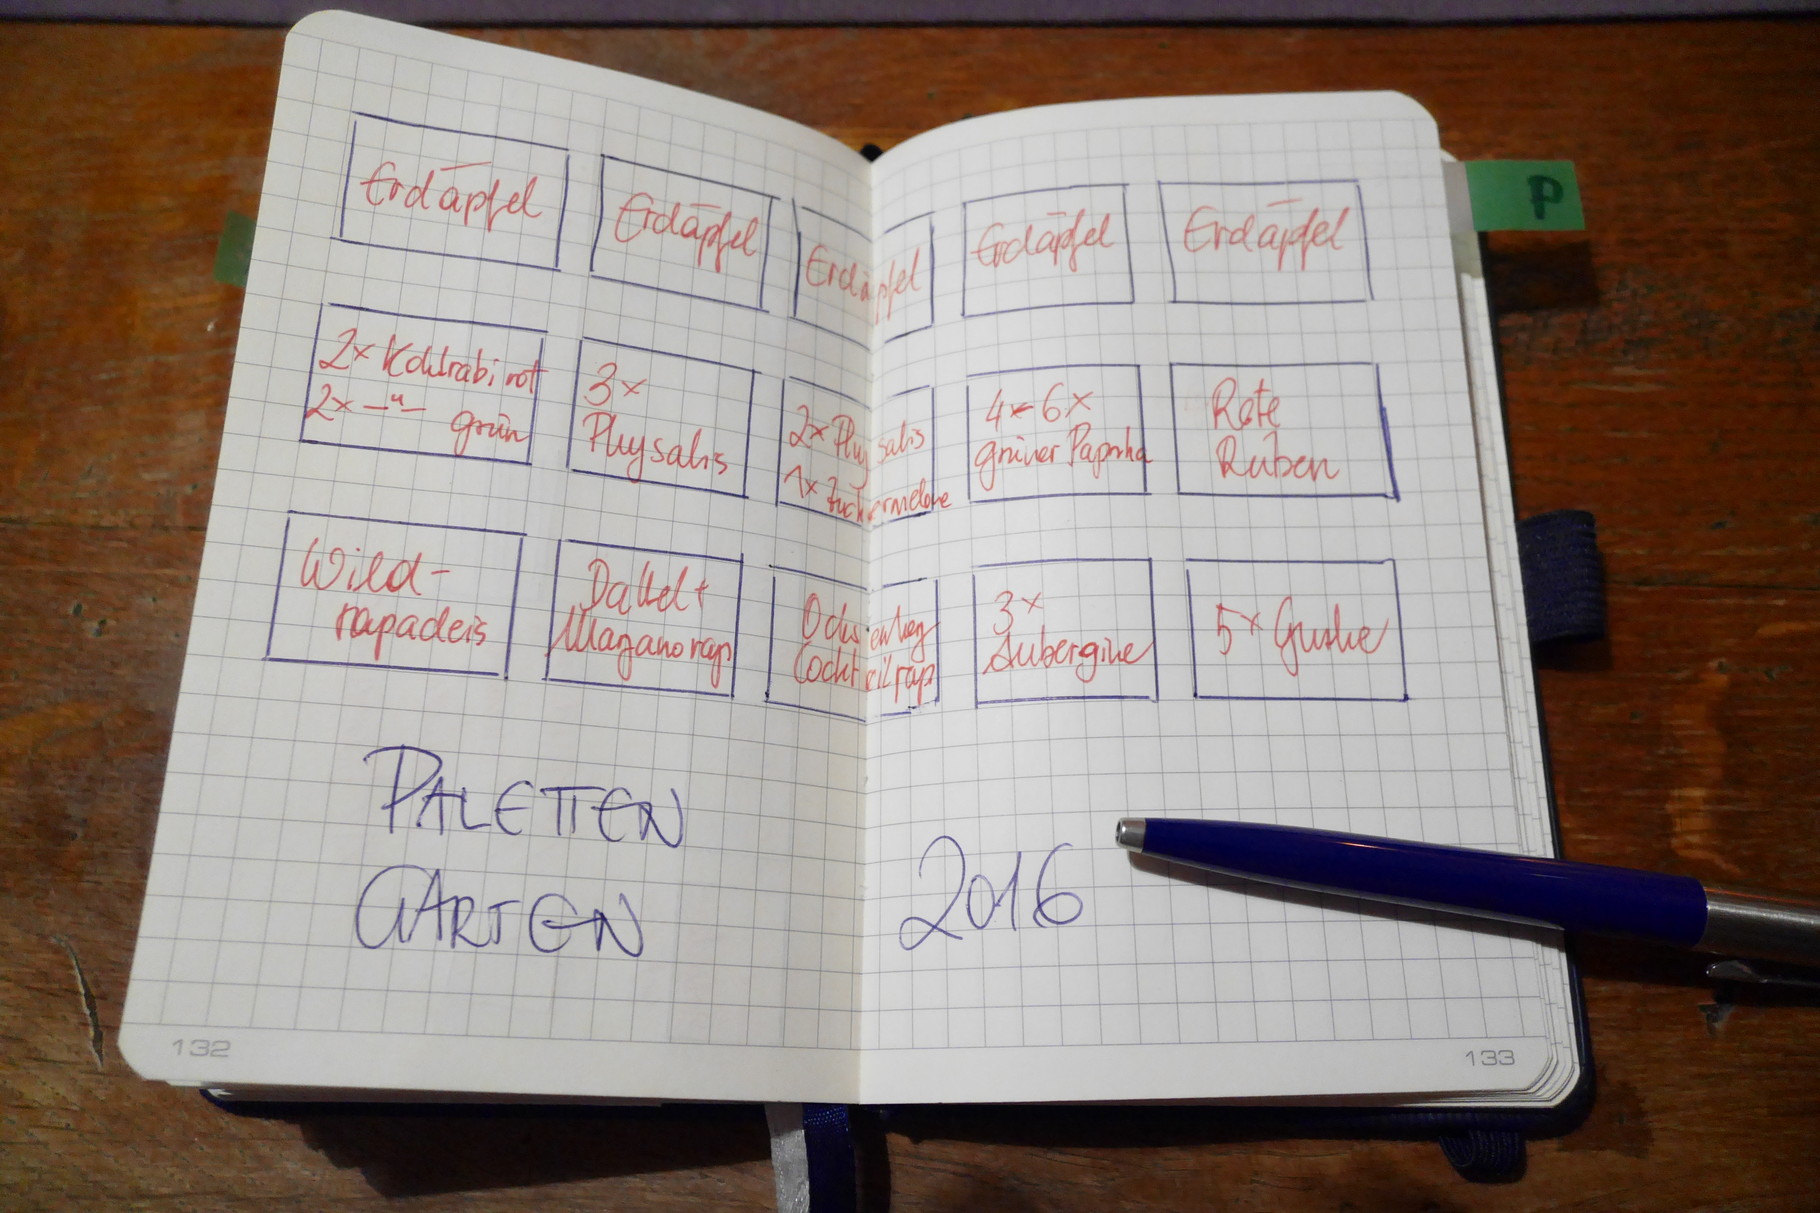 P
Erdäpfel
Erdäpfel
Erdäpfel
Erdäpfel
Erdäpfel
2x Kohlrabi rot
2x —"— grün
3x
Physalis
2x Physalis
1x Zuckermelone
4x-6x
grüner Paprika
Rote
Rüben
Wild-
rapadeis
Dattel+
Ochsenherz
Cocktailrap
3x
Aubergine
5x Gurke
PALETTEN
GARTEN
2016
132
133